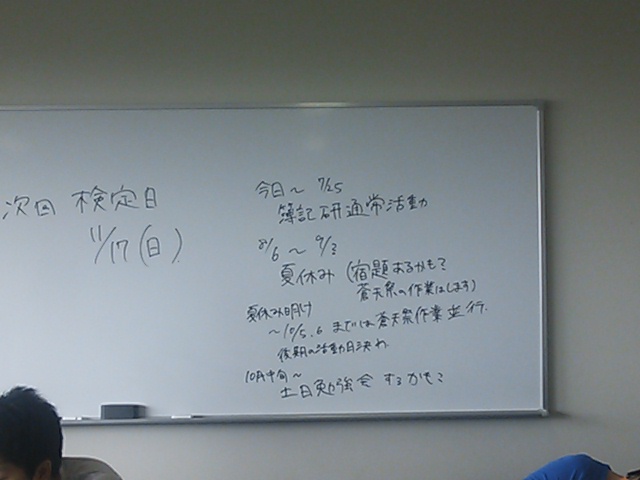 次回 検定日
11/17(日)
今日～ 7/25
簿記研通常活動
8/6 ～ 9/3
夏休み (宿題あるかも?
蒼天祭の作業はします)
夏休み明け
～10/5.6 までは蒼天祭作業並行.
後期の活動日決め
10月中旬～
土日勉強会するかも?